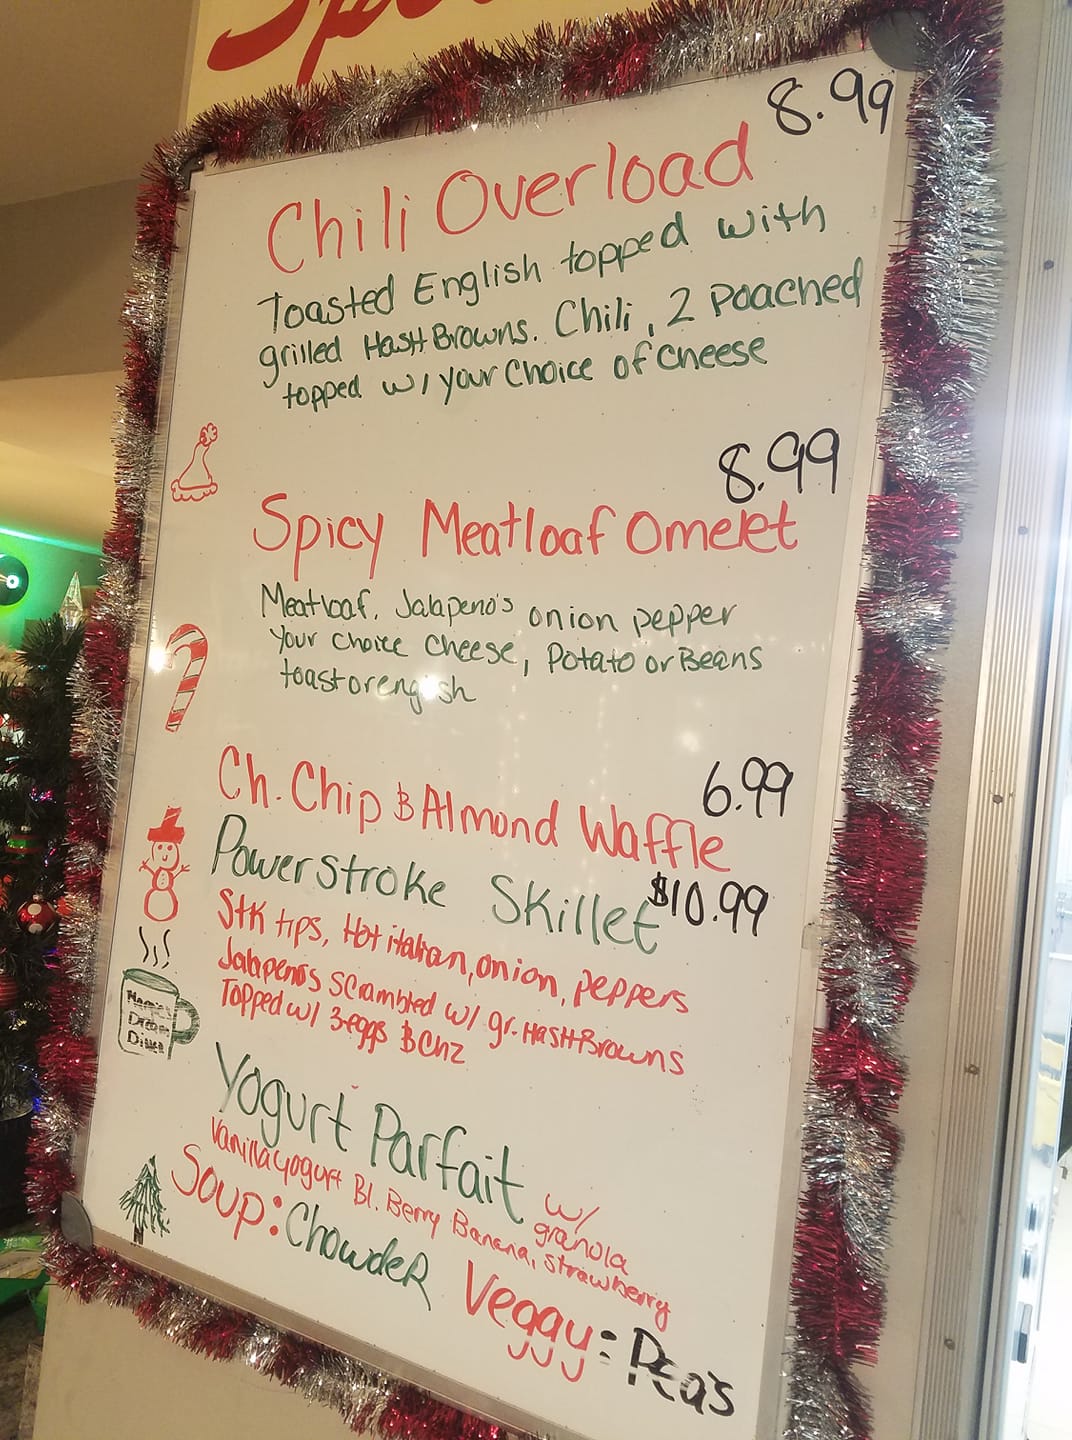 8.99
Chili Overload
Toasted English topped with
grilled Hash Browns. Chili, 2 Poached
topped w/ your Choice of Cheese
8.99
Spicy Meatloaf Omelet
Meatloaf, Jalapeno's onion pepper
your choice cheese, Potato or Beans
toast or english
6.99
Ch. Chip & Almond Waffle
Powerstroke Skillet $10.99
Stk tips, Hot italian, onion, peppers
Jalapeno's scrambled w/ gr. Hash Browns
Topped w/ 3-eggs & Chz
Dream
Diner
Yogurt Parfait w/ granola
Vanilla yogurt Bl. Berry Banana, strawberry
Soup: Chowder Veggy: Pea's